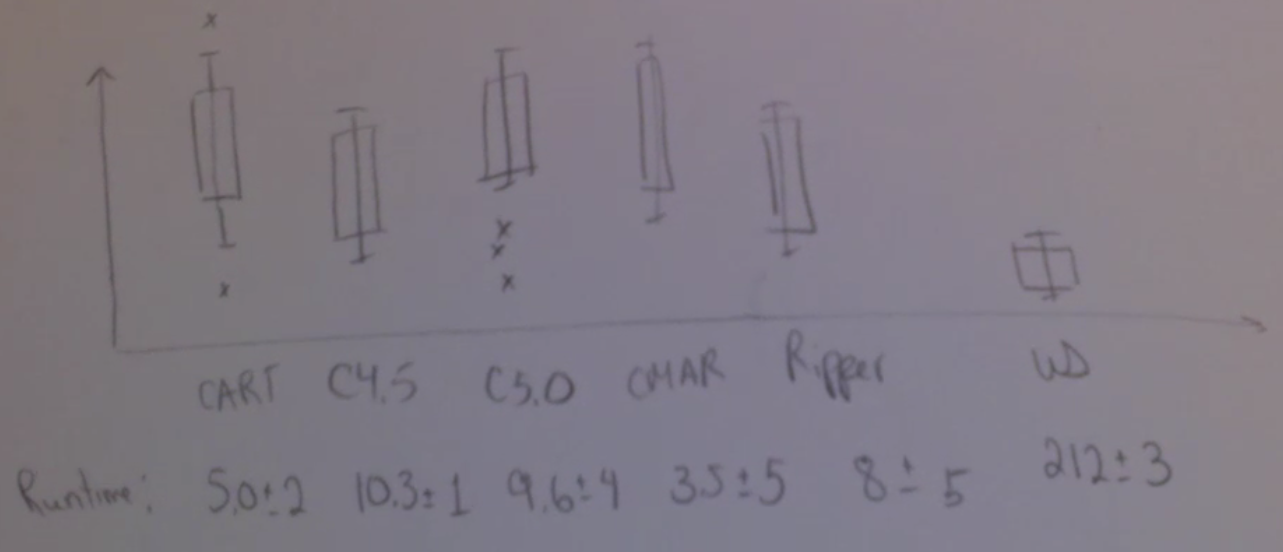 CART C4.5 C5.0 CMAR Ripper US
Runtime: 5.0±2 10.3±1 9.6±4 3.5±5 8±5 212±3